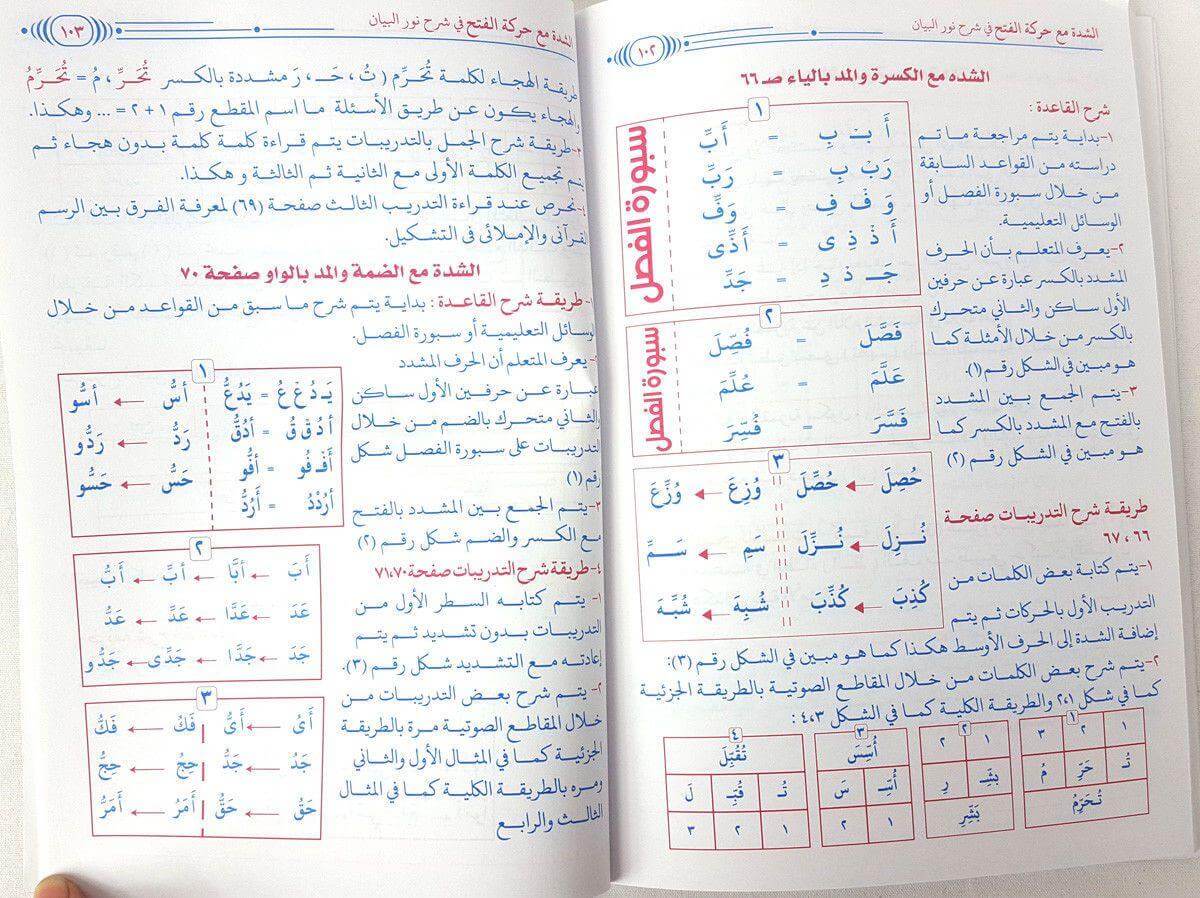 الشدة مع حركة الفتح في شرح نور البيان
١٠٢
الشده مع الكسرة والمد بالياء صـ ٦٦
شرح القاعدة :
١-بداية يتم مراجعة ما تم
دراسته من القواعد السابقة
من خلال سبورة الفصل أو
الوسائل التعليمية.
٢-يعرف المتعلم بأن الحرف
المشدد بالكسر عبارة عن حرفين
الأول ساكن والثاني متحرك
بالكسر من خلال الأمثلة كما
هو مبين في الشكل رقم (١).
٣-يتم الجمع بين المشدد
بالفتح مع المشدد بالكسر كما
هو مبين في الشكل رقم (٢)
١
أَ بـْ بِ = أَبِّ
رَ بْ بِ = رَبِّ
وَ فْ فِ = وَفِّ
أَ ذْ ذِ ى = أَذِّى
جَـ دْ دِ = جَدِّ
سبورة الفصل
٢
فَصَّلَ = فُصِّلَ
عَلَّمَ = عُلِّمَ
فَسَّرَ = فُسِّرَ
سبورة الفصل
٣
حُصِلَ ← حُصِّلَ وُزِعَ ← وُزِّعَ
نُـزِلَ ← نُـزِّلَ سَمِ ← سَـمِّ
كُذِبَ ← كُذِّبَ شُبِهَ ← شُبِّهَ
طريقة شرح التدريبات صفحة
٦٦ ، ٦٧
١-يتم كتابة بعض الكلمات من
التدريب الأول بالحركات ثم يتم
إضافة الشدة إلى الحرف الأوسط هكذا كما هو مبين في الشكل رقم (٣):
٢-يتم شرح بعض الكلمات من خلال المقاطع الصوتية بالطريقة الجزئية
كما في شكل ٢،١ والطريقة الكلية كما في الشكل ٤،٣ :
١
١ ٢ ٣
تُـ حَرِّ مُ
تُـحَرِّمُ
٢
١ ٢
بَشِّـ رِ
بَشِّرِ
٣
أُسِّسَ
أُسِّـ سَ
١ ٢
٤
تُقُبِّلَ
تُـ قُبِّـ لَ
١ ٢ ٣
الشدة مع حركة الفتح في شرح نور البيان
١٠٣
طريقة الهجاء لكلمة تُحَرِّم ( تُ ، حَـ ، رَ مشددة بالكسر تُحَرِّ ، مُ = تُحَرِّمُ
والهجاء يكون عن طريق الأسئلة ما اسم المقطع رقم ١ + ٢ = ... وهكذا.
٣-طريقة شرح الجمل بالتدريبات يتم قراءة كلمة كلمة بدون هجاء ثم
يتم تجميع الكلمة الأولى مع الثانية ثم الثالثة و هكذا.
٤-نحرص عند قراءة التدريب الثالث صفحة (٦٩) لمعرفة الفرق بين الرسم
القرآنى والإملائى فى التشكيل.
الشدة مع الضمة والمد بالواو صفحة ٧٠
١- طريقة شرح القاعدة : بداية يتم شرح ما سبق من القواعد من خلال
الوسائل التعليمية أو سبورة الفصل.
٢-يعرف المتعلم أن الحرف المشدد
عبارة عن حرفين الأول ساكن
والثاني متحرك بالضم من خلال
التدريبات على سبورة الفصل شكل
رقم (١)
٣-يتم الجمع بين المشدد بالفتح
مع الكسر والضم شكل رقم (٢)
١
يَـ دُ عْ عُ = يَدُعُّ أسُّ ← أسُّو
أ دُ قْ قُ = أدُقُّ رَدُّ ← رَدُّو
أَفْـ فُو = أفُّو حَسُّ ← حَسُّو
أرُدْدُ = أَرُدُّ
٢
أَبَ ← أبَّا ← أبِّ ← أَبُّ
عَدَ ← عَدَّا ← عَدِّ ← عَدُّ
جَدَ ← جَدَّا ← جَدِّى ← جَدُّو
٤-طريقة شرح التدريبات صفحة ٧١،٧٠
١- يتم كتابه السطر الأول من
التدريبات بدون تشديد ثم يتم
إعادته مع التشديد شكل رقم (٣).
٢- يتم شرح بعض التدريبات من
خلال المقاطع الصوتية مرة بالطريقة
الجزئية كما فى المثال الأول والثانى
ومره بالطريقة الكلية كما فى المثال
الثالث والرابع
٣
أَىُ ← أَىُّ فَكُ ← فَكُّ
جَدُ ← جَدُّ حِجُ ← حِجُّ
حَقُ ← حَقُّ أَمَرُ ← أَمَرُّ